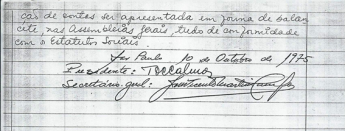 ção de contas ser apresentada em forma de balan
cête nas Assembléias Gerais, tudo de conformidade
com o Estatutos Sociais.
São Paulo 10 de Outubro de 1975
Presidente:
Secretário geral: